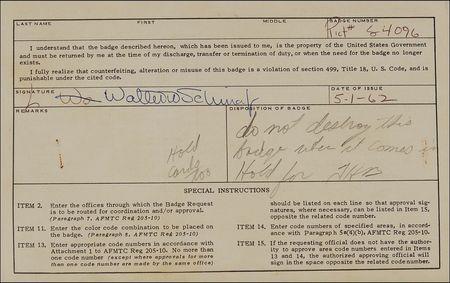 LAST NAME FIRST MIDDLE BADGE NUMBER
Pict# 84096
I understand that the badge described hereon, which has been issued to me, is the property of the United States Government
and must be returned by me at the time of my discharge, transfer or termination of duty, or when the need for the badge no longer
exists.
I fully realize that counterfeiting, alteration or misuse of this badge is a violation of section 499, Title 18, U. S. Code, and is
punishable under the cited code.
SIGNATURE DATE OF ISSUE
Walter 5-1-62
REMARKS DISPOSITION OF BADGE
Hold
do not destroy this
badge when it comes in
Hold for
SPECIAL INSTRUCTIONS
ITEM 2. Enter the offices through which the Badge Request
is to be routed for coordination and/or approval.
(Paragraph 7, AFMTC Reg 205-10)
ITEM 11. Enter the color code combination to be placed on
the badge. (Paragraph 8, AFMTC Reg 205-10)
ITEM 13. Enter appropriate code numbers in accordance with
Attachment 1 to AFMTC Reg 205-10. No more than
one code number (except where approvals for more
than one code number are made by the same office)
should be listed on each line so that approval sig-
natures, where necessary, can be listed in Item 15,
opposite the related code number.
ITEM 14. Enter code numbers of specified areas, in accord-
ance with Paragraph 5a(4)(b) AFMTC Reg 205-10.
ITEM 15. If the requesting official does not have the author-
ity to approve area code numbers entered in Items
13 and 14, the authorized approving official will
sign in the space opposite the related code number.